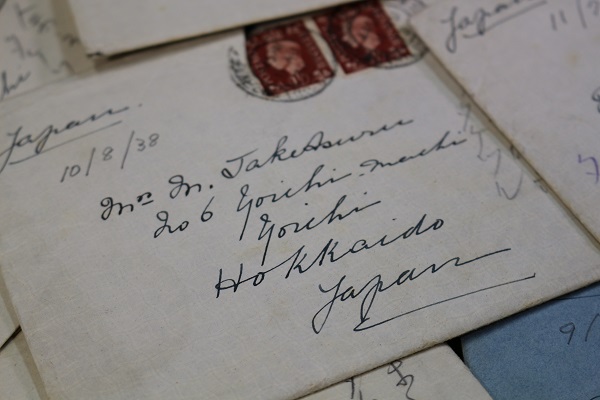 Japan
11/
Japan.
10/8/38
Mrs M. Taketsuru
No 6 Yoichi-machi
Yoichi
Hokkaido
Japan
9/